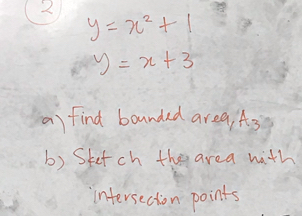 2
y = x² + 1
y = x + 3
a) Find bounded area, A3
b) Sketch the area with
intersection points